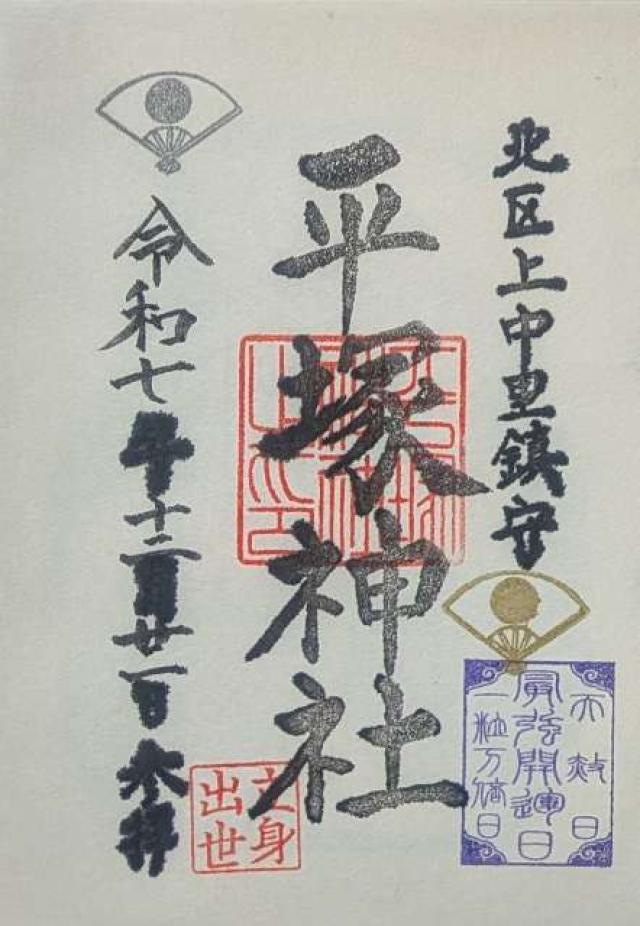 北区上中里鎮守
平塚神社
平塚神社之印
天赦日
最強開運日
一粒万倍日
立身
出世
令和七年十二月廿一日 参拝